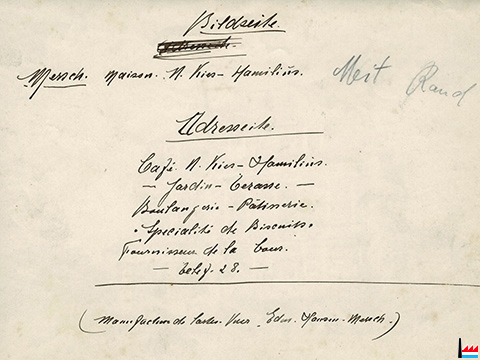 Bildseite.
Mersch. Maison. N. Kies-Hamilius. Mit Rand
Adresseite.
Café. N. Kies-Hamilius.
— Jardin-Terasse. —
Boulangerie-Pâtisserie.
. Specialité de Biscuits.
Fournisseur de la Cour.
— Telef. 28. —
(Manufacture de Cartes Vues Edm. Hansen-Mersch.)